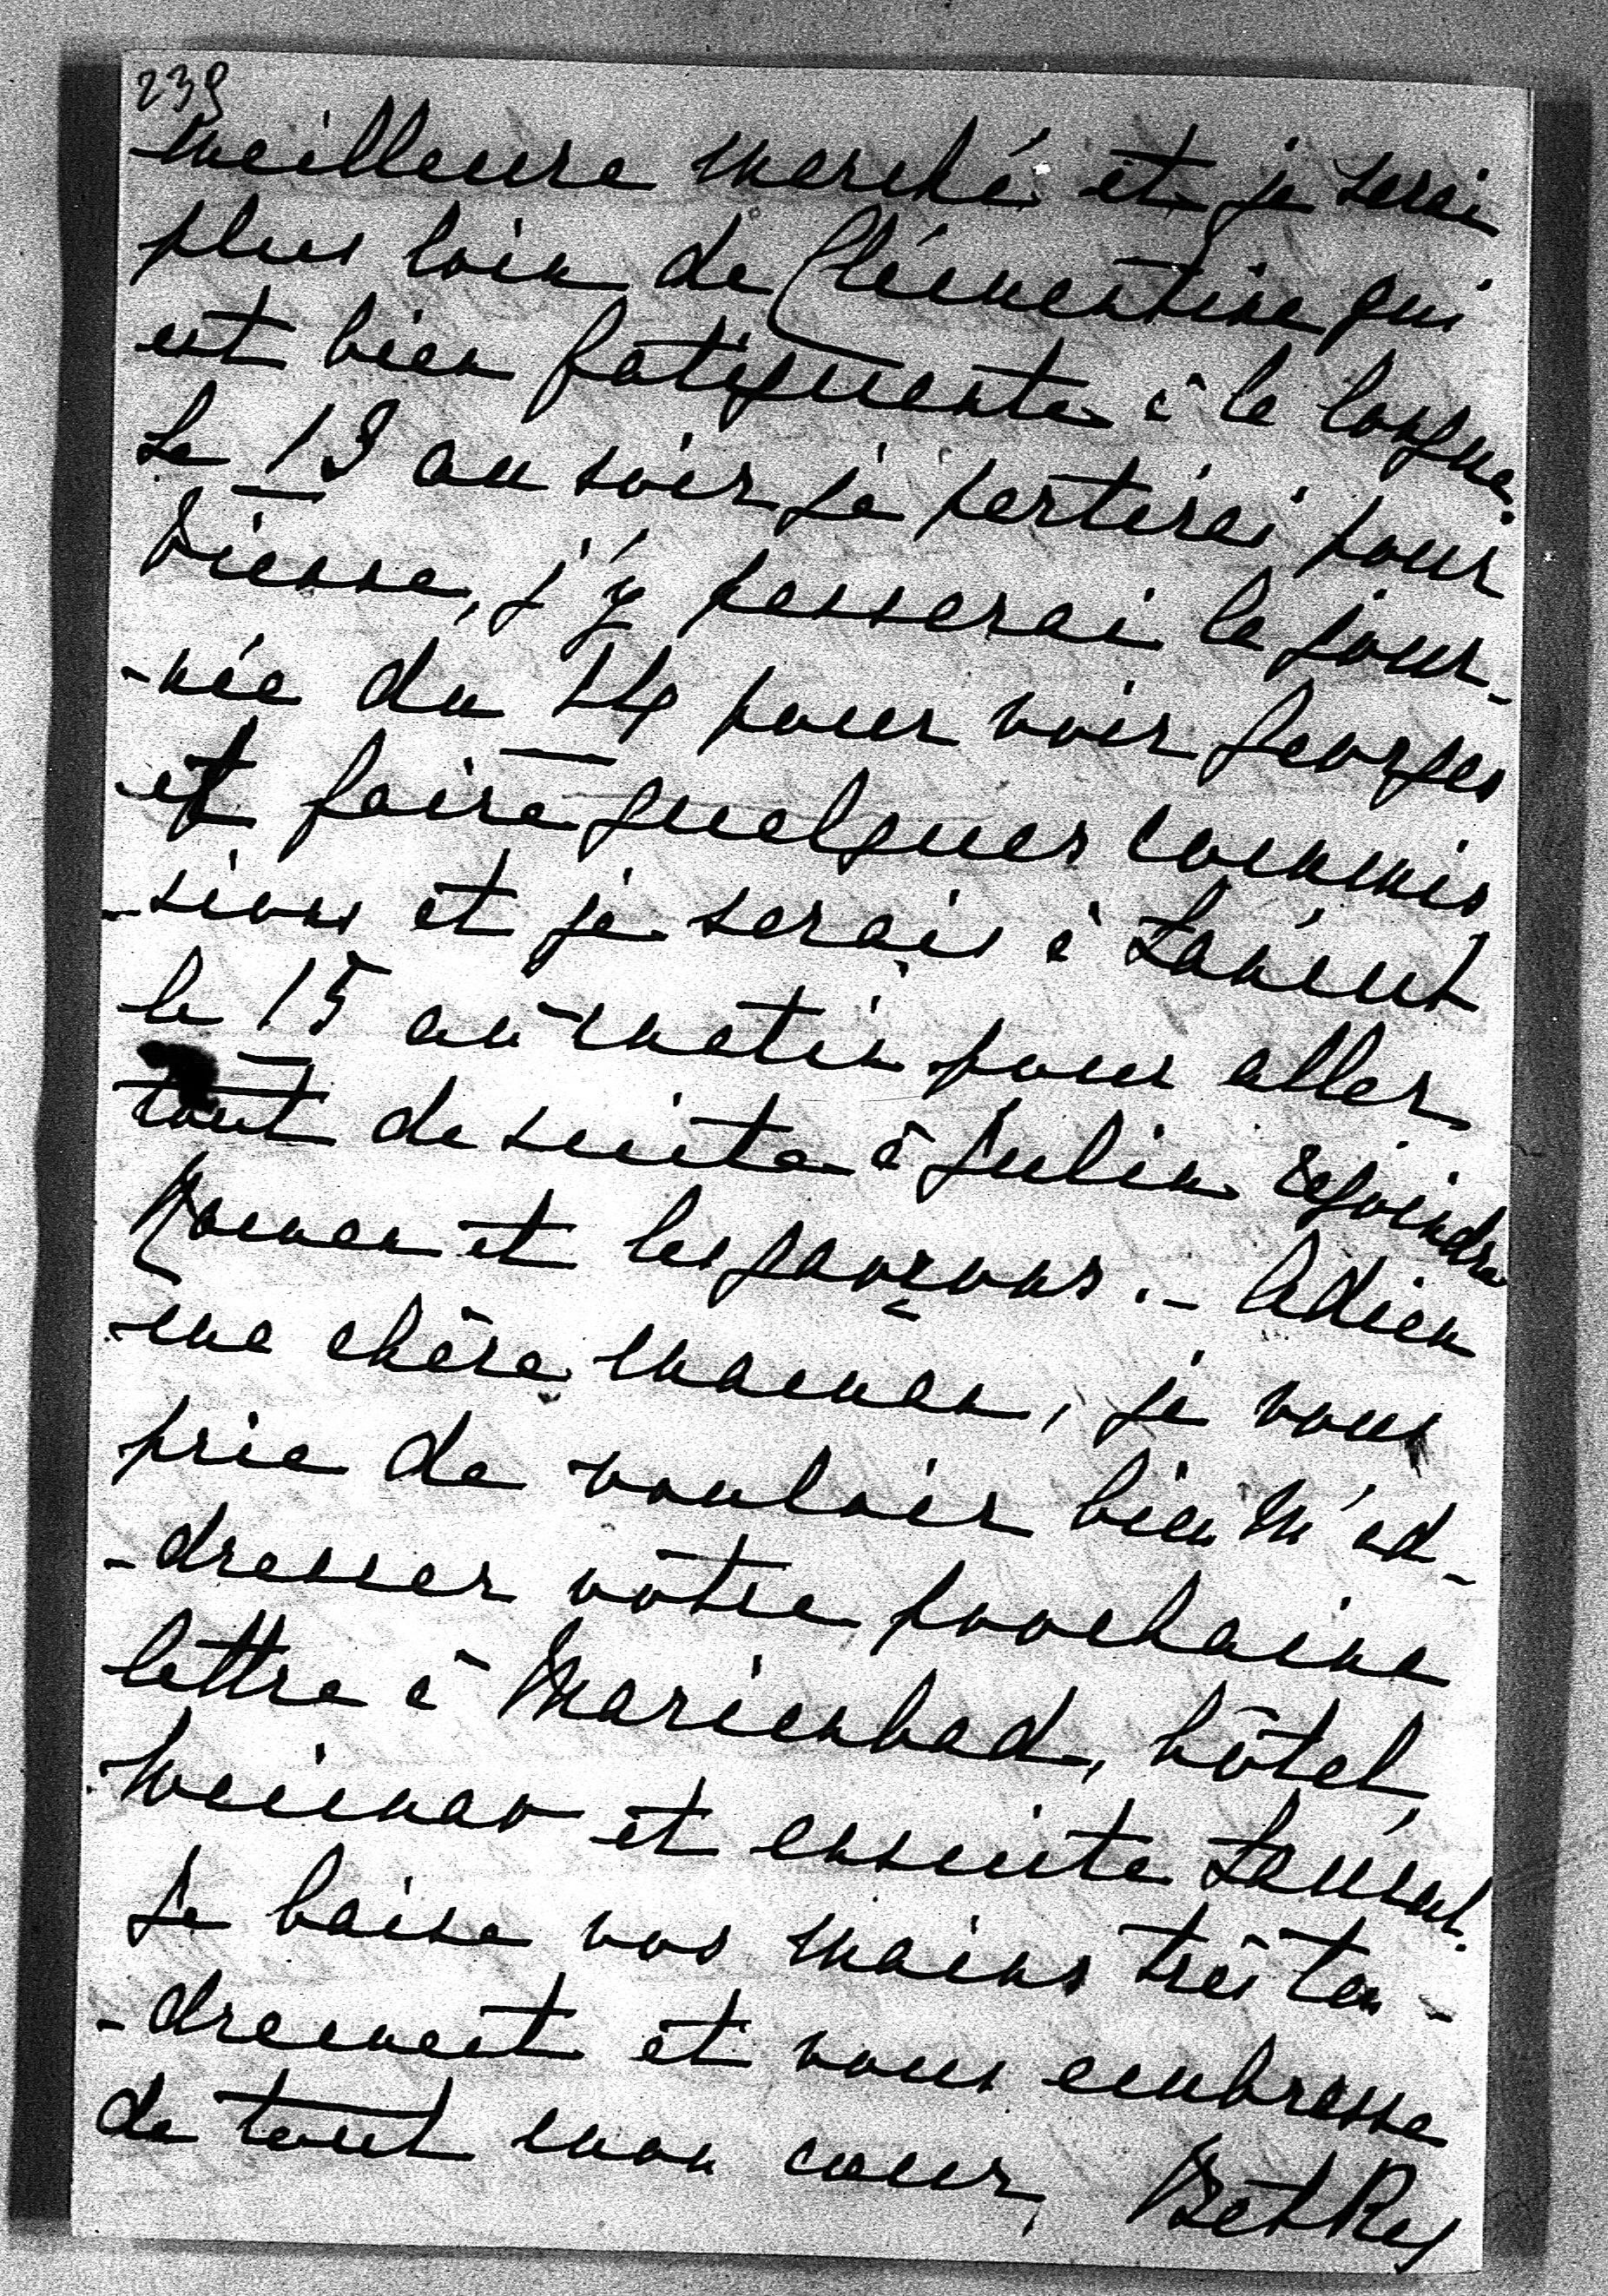 239
meilleure marché et je serai
plus loin de Clémentine qui
est bien fatiguante à la longue.
Le 13 au soir je partirai pour
Vienne, j'y passerai la jour-
-née du 14 pour voir Georges
et faire quelques commis
-sions et je serais à Łańcut
le 15 au matin pour aller
tout de suite à Julin rejoindre
Roman et les garçons. - Adieu
ma chère maman, je vous
prie de vouloir bien m'ad-
-dresser votre prochaine
lettre à Marienbad, hôtel
Weimar et ensuite Łańcut.
Je baise vos mains très ten-
-drement et vous embrasse
de tout mon cœur,